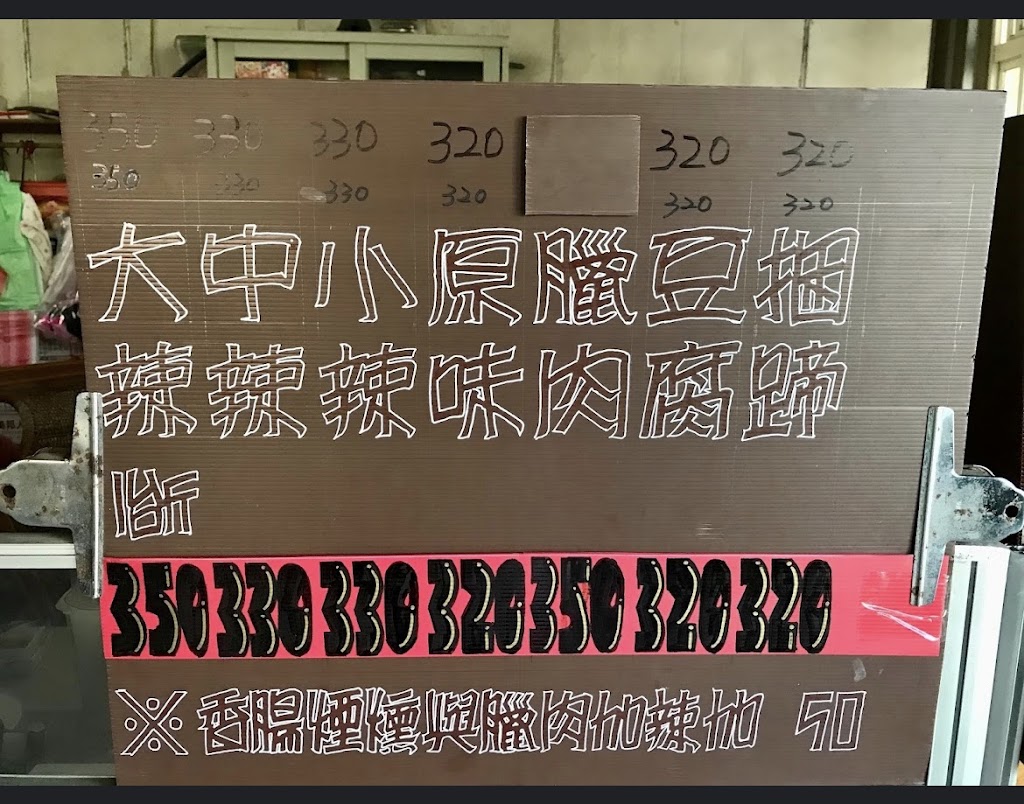 350 330 330 320 320 320
350 330 330 320 320 320
大辣
中辣
小辣
原味
臘肉
豆腐
捆蹄
350 330 330 320 350 320 320
※香腸煙燻與臘肉加辣加 50